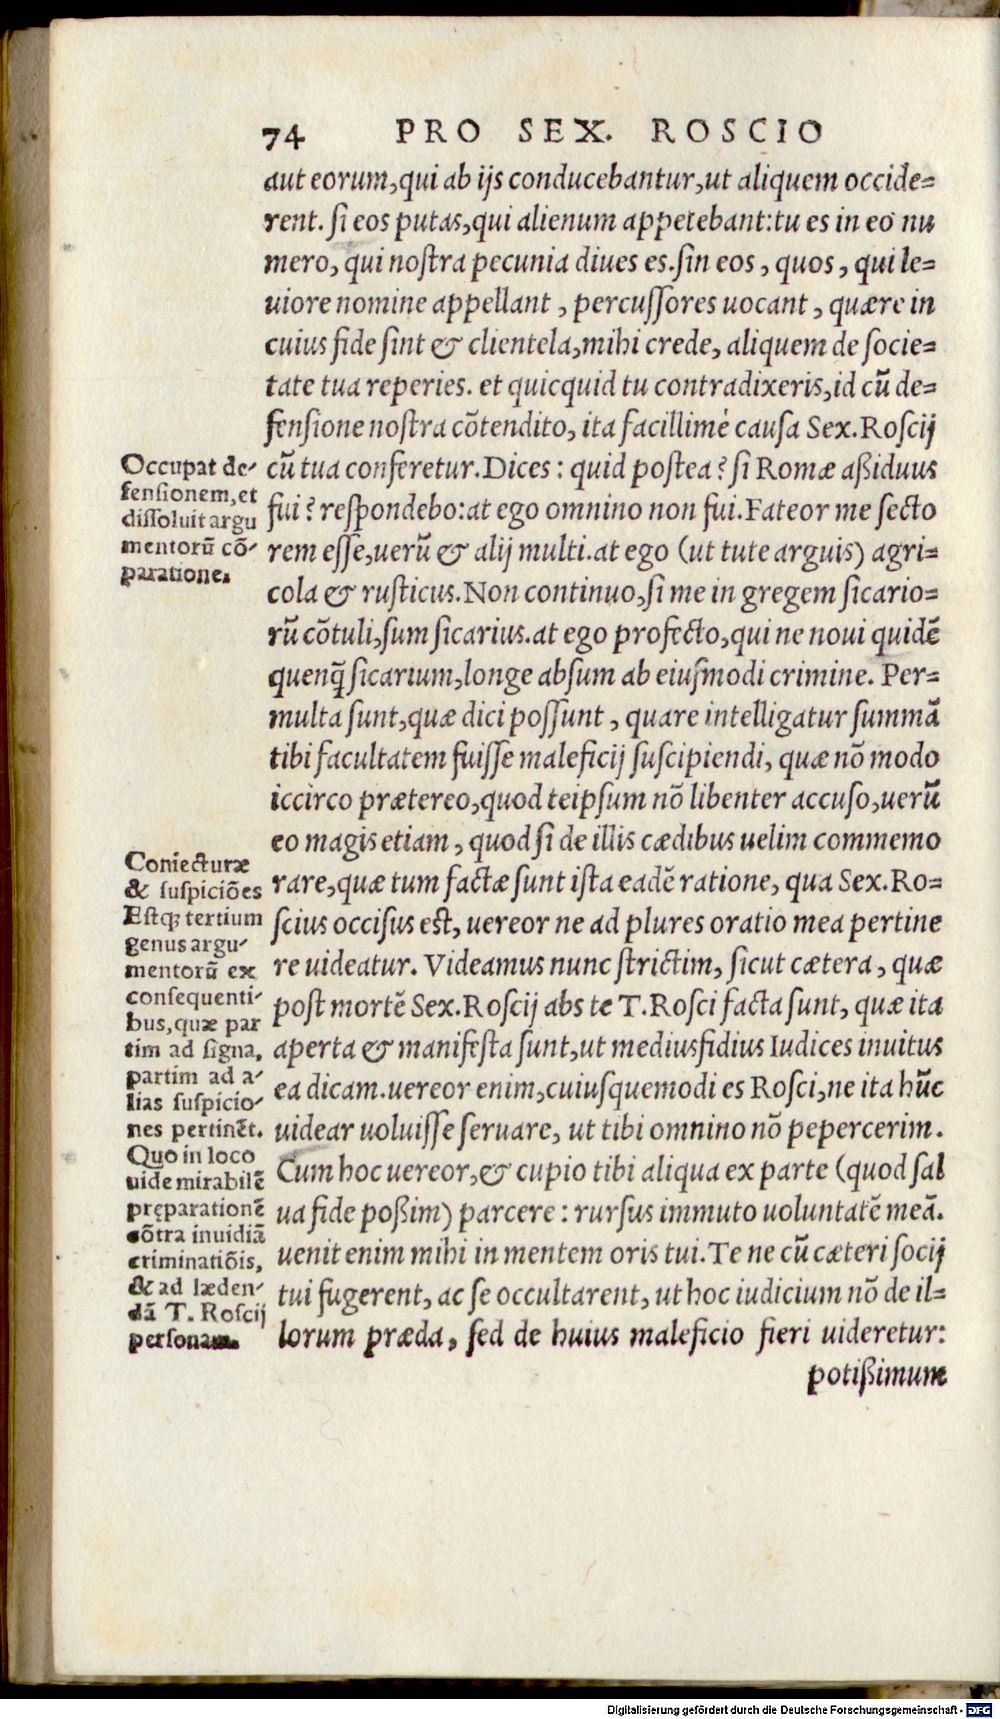 74 PRO SEX. ROSCIO
aut eorum,qui ab ijs conducebantur,ut aliquem occide=
rent. si eos putas,qui alienum appetebant:tu es in eo nu
mero, qui nostra pecunia diues es.sin eos, quos, qui le=
uiore nomine appellant, percussores uocant, quære in
cuius fide sint & clientela,mihi crede, aliquem de socie=
tate tua reperies. et quicquid tu contradixeris,id cũ de=
fensione nostra cõtendito, ita facillimè causa Sex.Roscij
cũ tua conferetur.Dices: quid postea? si Romæ aßiduus
fui? respondebo:at ego omnino non fui.Fateor me secto
rem esse,uerũ & alij multi.at ego (ut tute arguis) agri=
cola & rusticus.Non continuo,si me in gregem sicario=
rũ cõtuli,sum sicarius.at ego profecto,qui ne noui quidẽ
quenq̃ sicarium,longe absum ab eiusmodi crimine. Per=
multa sunt,quæ dici possunt, quare intelligatur summã
tibi facultatem fuisse maleficij suscipiendi, quæ nõ modo
iccirco prætereo,quod teipsum nõ libenter accuso,uerũ
eo magis etiam, quod si de illis cædibus uelim commemo
rare,quæ tum factæ sunt ista eadẽ ratione, qua Sex.Ro=
scius occisus est, uereor ne ad plures oratio mea pertine
re uideatur. Videamus nunc strictim, sicut cætera, quæ
post mortẽ Sex.Roscij abs te T.Rosci facta sunt, quæ ita
aperta & manifesta sunt,ut mediusfidius Iudices inuitus
ea dicam.uereor enim,cuiusquemodi es Rosci,ne ita hũc
uidear uoluisse seruare, ut tibi omnino nõ pepercerim.
Cum hoc uereor,& cupio tibi aliqua ex parte (quod sal
ua fide poßim) parcere: rursus immuto uoluntatẽ meã.
uenit enim mihi in mentem oris tui.Te ne cũ cæteri socij
tui fugerent, ac se occultarent, ut hoc iudicium nõ de il=
lorum præda, sed de huius maleficio fieri uideretur:
potißimum
Occupat de-
fensionem,et
dissoluit argu
mentorũ cõ-
paratione.
Coniecturæ
& suspiciões
Estq; tertium
genus argu-
mentorũ ex
consequenti-
bus,quæ par
tim ad signa,
partim ad a-
lias suspicio-
nes pertinẽt.
Quo in loco
uide mirabilẽ
pręparationẽ
cõtra inuidiã
criminatiõis,
& ad læden-
dã T. Roscij
personam.
Digitalisierung gefördert durch die Deutsche Forschungsgemeinschaft - DFG